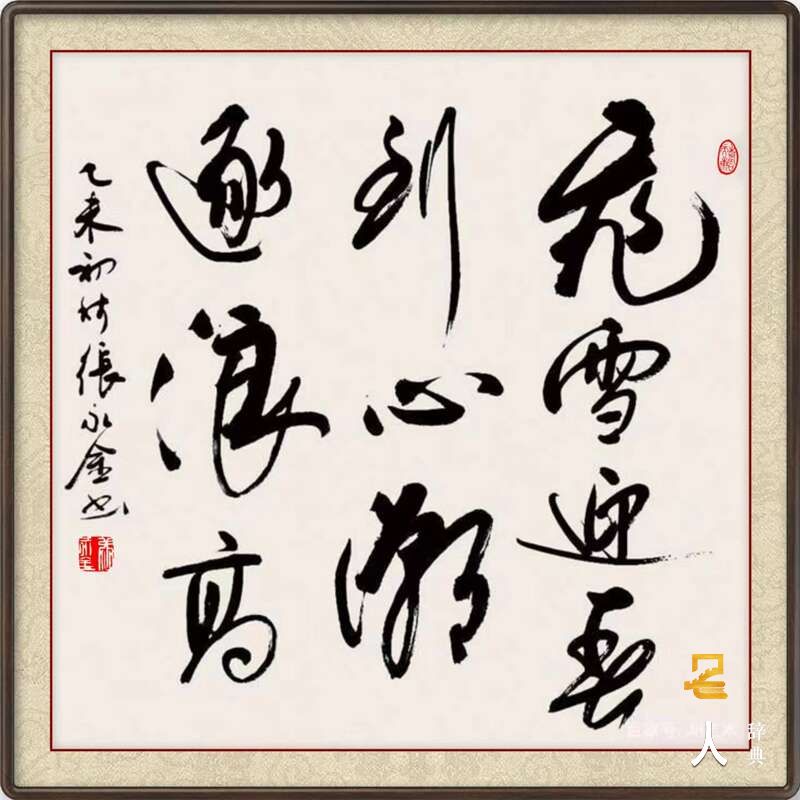 飛雪迎春
到心潮
逐浪高
乙未初張永金书
人
辞典